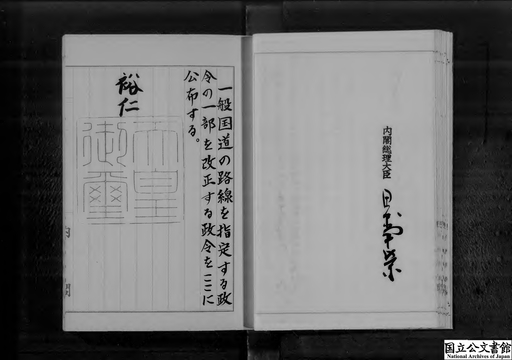 内閣総理大臣
一般国道の路線を指定する政
令の一部を改正する政令をここに
公布する。
裕仁
天皇
御璽
内閣
国立公文書館
National Archives of Japan